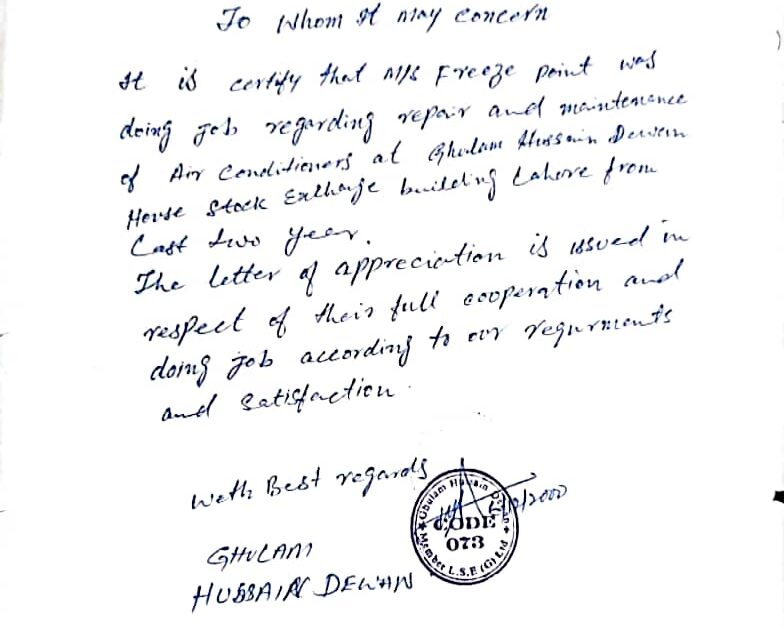 To Whom It May Concern
It is certify that M/S Freeze point was
doing job regarding repair and maintenance
of Air Conditioners at Ghulam Hussain Dewan
House Stock Exchange building Lahore from
Last two year.
The letter of appreciation is issued in
respect of their full cooperation and
doing job according to our requrments
and satisfaction.
With Best regards
Ghulam Hussain Dewan
CODE
073
Member L.S.E (G) Ltd
/2000
GHULAM
HUSSAIN DEWAN